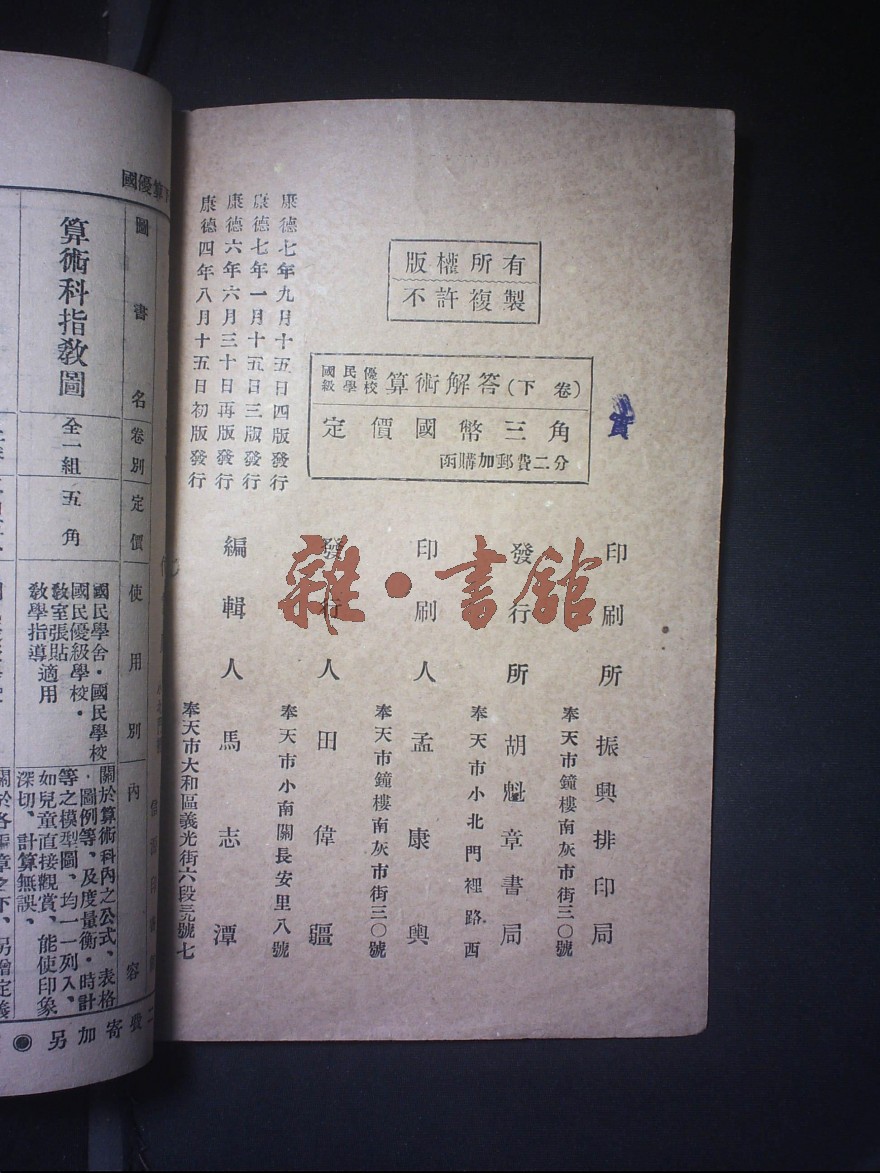 版權所有
不許複製
國民優
級學校 算術解答（下卷）
定價國幣三角
函購加郵費二分
康德七年九月十五日四版發行
康德七年一月十五日三版發行
康德六年六月三十日再版發行
康德四年八月十五日初版發行
編輯人 馬志潭
奉天市大和區義光街六段三號七
發行人 田偉疆
奉天市小南關長安里八號
印刷人 孟康輿
奉天市鐘樓南灰市街三〇號
發行所 胡魁章書局
奉天市小北門裡路西
印刷所 振興排印局
奉天市鐘樓南灰市街三〇號
賣
雜·書館
國優算
圖書名
卷別
定價
使用別
內容
算術科指教圖
全一組
五角
國民學舍·國民學校
國民優級學校·
教室張貼
教學指導適用
關於算術科內之公式、表格
·圖例等、及度量衡·時計
等之模型圖、均一一列入、
如兒童直接觀賞、能使印象
深切、計算無誤、
關於各編章之下、另增定義
另加寄費二